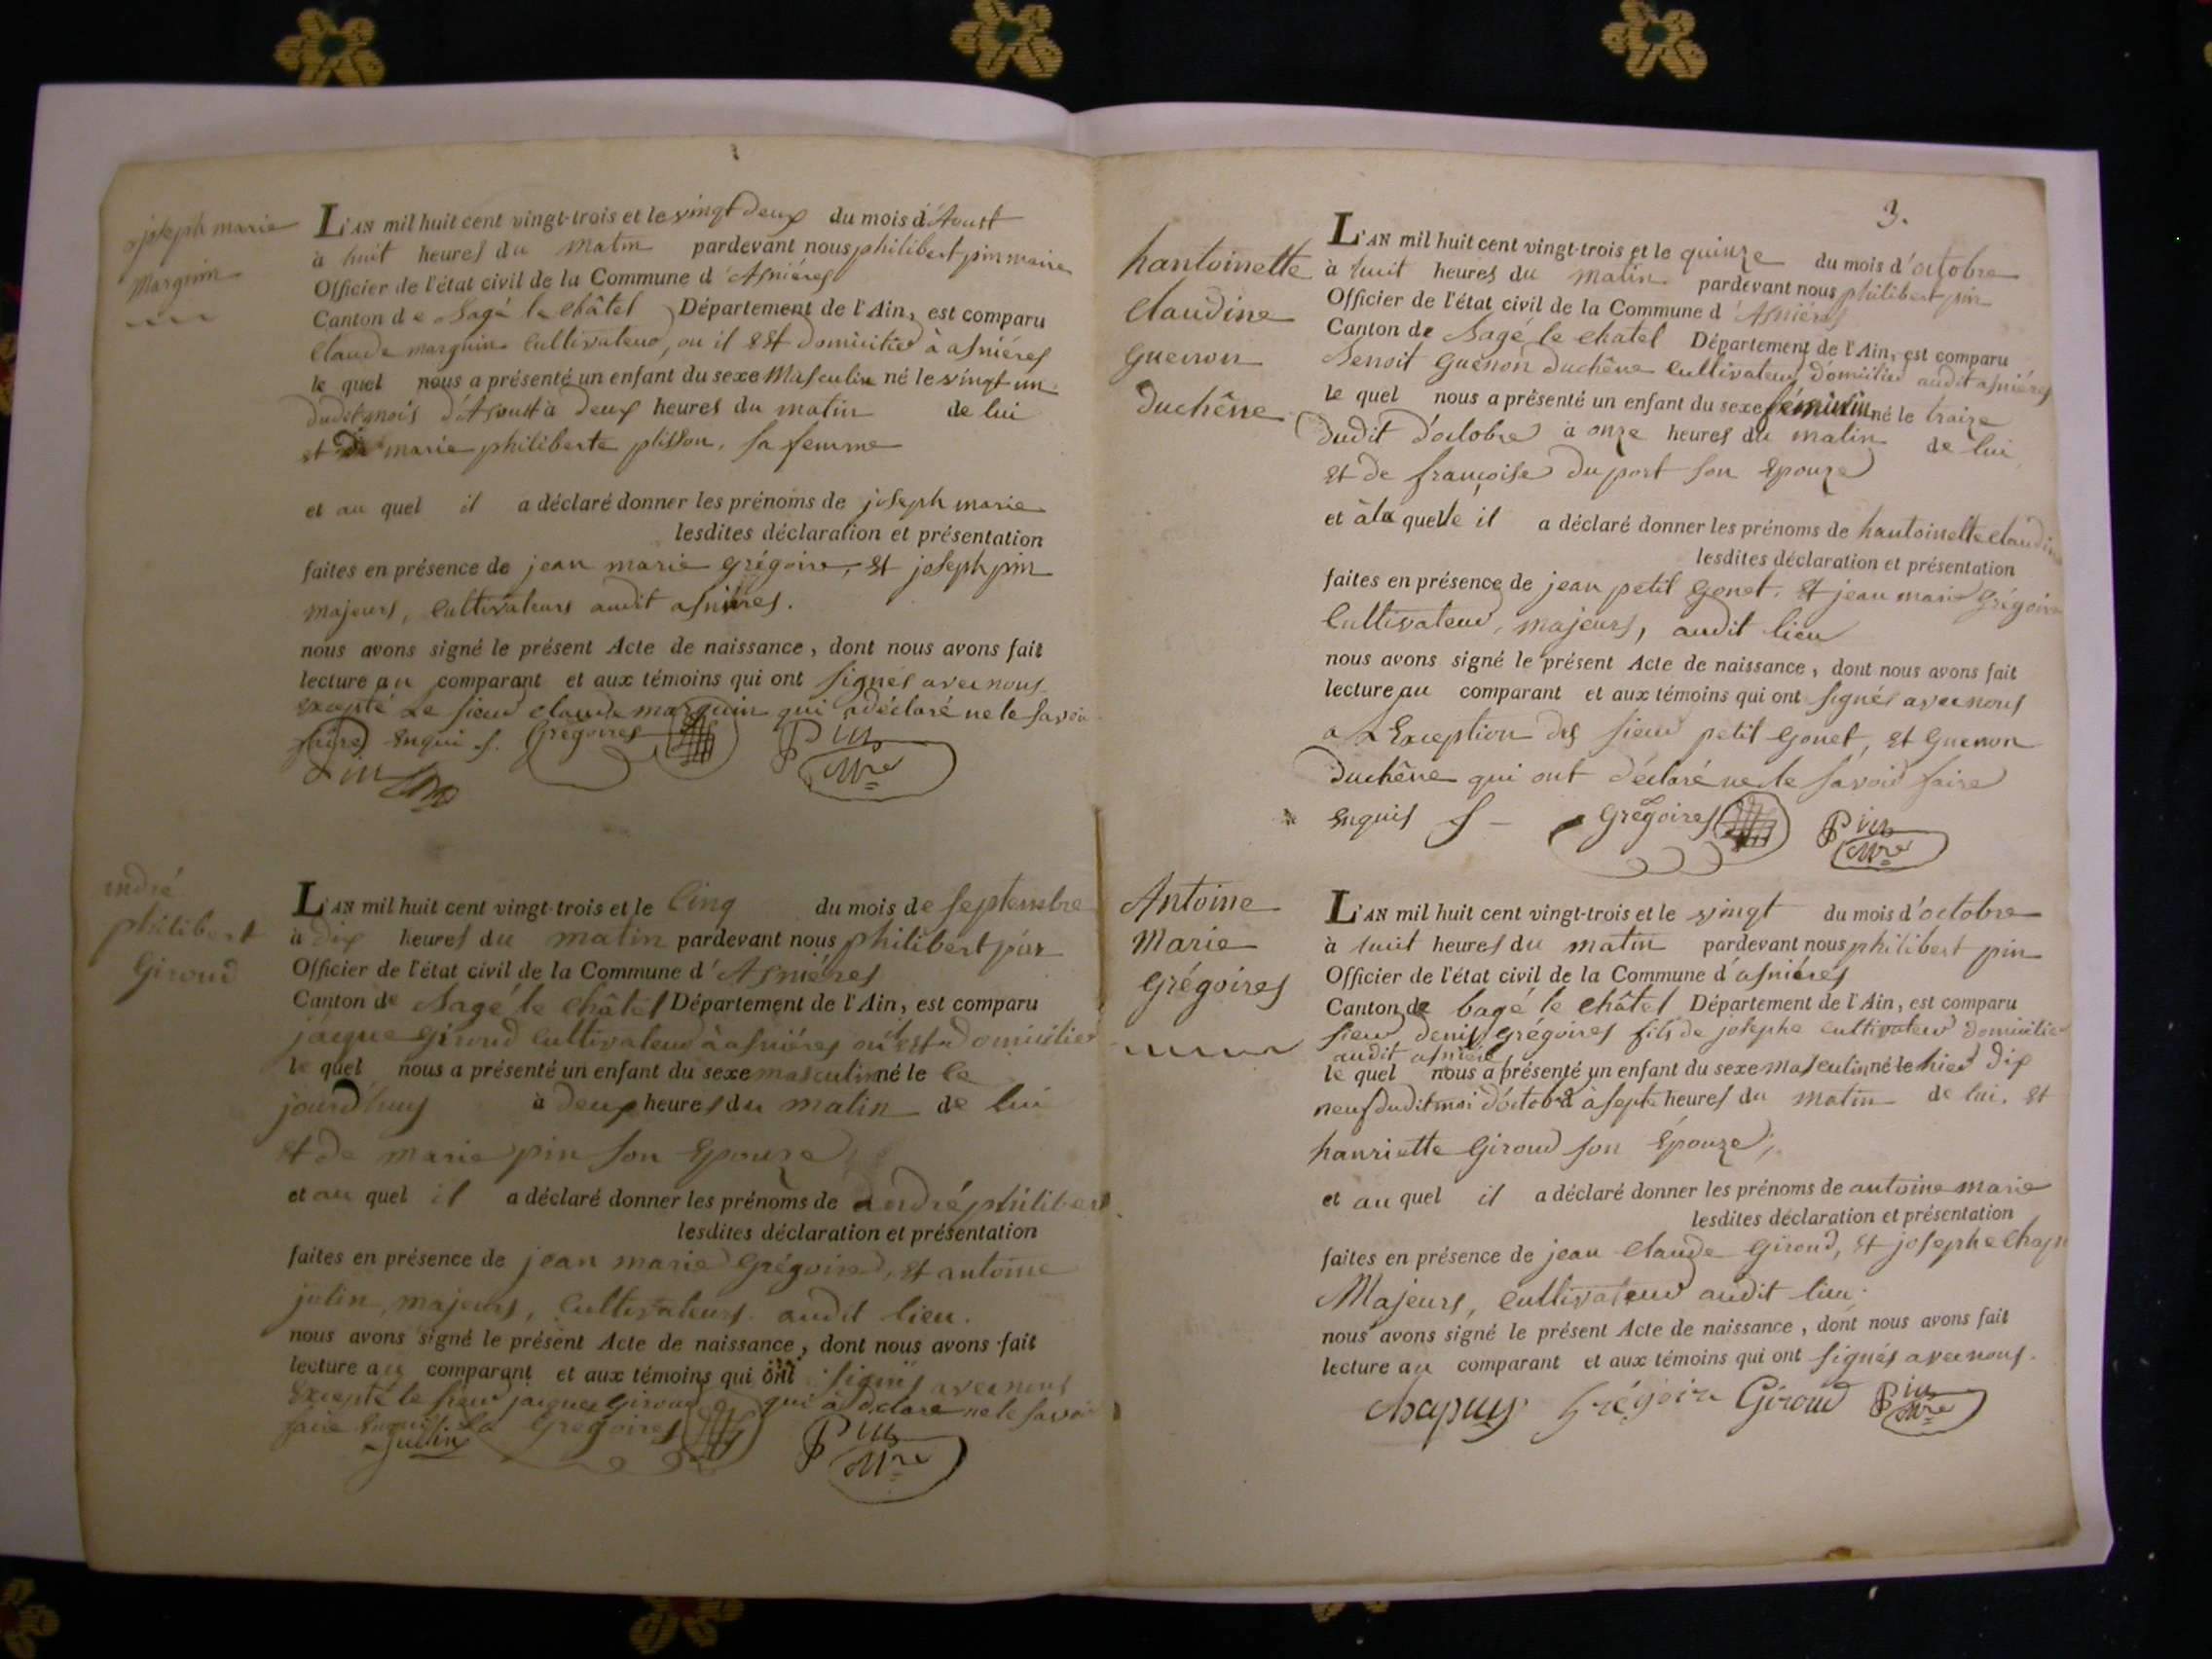 joseph marie
Marguin
L'AN mil huit cent vingt-trois et le vingt deux du mois d'Aoust
à huit heures du matin pardevant nous philibert pin maire
Officier de l'état civil de la Commune d'Asniéres
Canton de Bagé le Châtel Département de l'Ain, est comparu
Claude marguin Cultivateur, ou il Est domicilié à asniéres
le quel nous a présenté un enfant du sexe Masculin né le vingt un
dudit mois d'Aoust à deux heures du matin de lui
et de marie philiberte plisson, sa femme
et au quel il a déclaré donner les prénoms de joseph marie
lesdites déclaration et présentation
faites en présence de jean marie grégoire, Et joseph pin
majeurs, Cultivateurs audit asniéres.
nous avons signé le présent Acte de naissance, dont nous avons fait
lecture au comparant et aux témoins qui ont signés avec nous
Excepté Le sieur claude marguin qui a déclaré ne le savoir
faire Enquis. Grégoires Pin
Pin Mre
andré
philibert
Giroud
L'AN mil huit cent vingt-trois et le Cinq du mois de septembre
à dix heures du matin pardevant nous philibert pin
Officier de l'état civil de la Commune d'Asniéres
Canton de Bagé le Châtel Département de l'Ain, est comparu
jacque Giroud Cultivateur à asniéres où il est domicilié
le quel nous a présenté un enfant du sexe masculin né le ce
jourd'huy à deux heures du matin de lui
et de marie pin son Epouze
et au quel il a déclaré donner les prénoms de andré philibert
lesdites déclaration et présentation
faites en présence de jean marie Grégoire, Et antoine
julin, majeurs, Cultivateurs audit lieu.
nous avons signé le présent Acte de naissance, dont nous avons fait
lecture au comparant et aux témoins qui ont signés avec nous
Excepté le sieur jacque Giroud qui à déclaré ne le savoir
faire Enquis Grégoires Pin
julin Mre
3.
hantoinette
Claudine
Guenon
Duchêne
L'AN mil huit cent vingt-trois et le quinze du mois d'octobre
à huit heures du matin pardevant nous philibert pin
Officier de l'état civil de la Commune d'Asniéres
Canton de Bagé le Chatel Département de l'Ain, est comparu
Benoit Guenon Duchêne Cultivateur domicilié audit asniéres
le quel nous a présenté un enfant du sexe féminin né le traize
dudit d'octobre à onze heures du matin de lui
Et de françoise du port son Epouze
et à la quelle il a déclaré donner les prénoms de hantoinette Claudine
lesdites déclaration et présentation
faites en présence de jean petit Gonet, Et jean marie Grégoire
Cultivateur, majeurs, audit lieu
nous avons signé le présent Acte de naissance, dont nous avons fait
lecture au comparant et aux témoins qui ont signés avec nous
a L'Exception des sieur petit Gonet, Et Guenon
Duchêne qui ont déclaré ne le savoir faire
Enquis Grégoires Pin
Mre
Antoine
Marie
Grégoires
L'AN mil huit cent vingt-trois et le vingt du mois d'octobre
à huit heures du matin pardevant nous philibert pin
Officier de l'état civil de la Commune d'asniéres
Canton de bagé le Châtel Département de l'Ain, est comparu
sieur denis Grégoires fils de josephe cultivateur domicilié
audit asniére
le quel nous a présenté un enfant du sexe masculin né le hier dix
neuf dudit moi d'octobre à septe heures du matin de lui, Et
hanriette Giroud son Épouze,
et au quel il a déclaré donner les prénoms de antoine marie
lesdites déclaration et présentation
faites en présence de jean Claude Giroud, Et josephe
Majeurs, cultivateur audit lieu.
nous avons signé le présent Acte de naissance, dont nous avons fait
lecture au comparant et aux témoins qui ont signés avec nous.
Chapuy Grégoire Giroud Pin
Mre